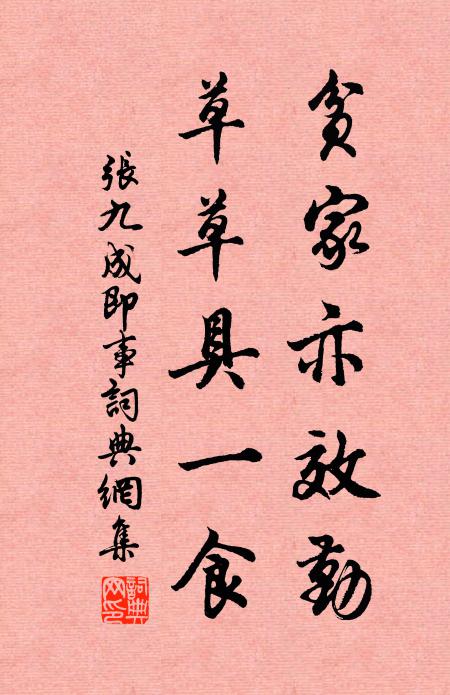 貧家亦效勤
草草具一食
張九成即事詞典網集
詞典網印